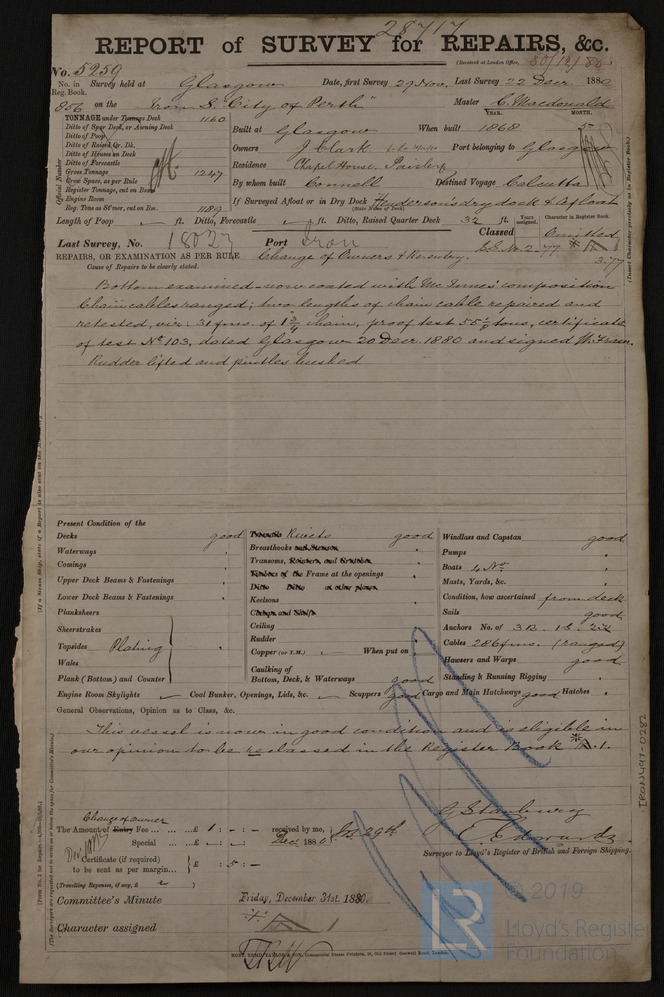 28717
REPORT of SURVEY for REPAIRS, &c.
(Received at London Office, 30/12/80
No. 5259
No. in Reg. Book. Survey held at Glasgow Date, first Survey 29 Nov. Last Survey 22 Decr 1880
856 on the Iron S. "City of Perth" Master C. Macdonald
TONNAGE under Tonnage Deck 1160
Ditto of Spar Deck, or Awning Deck
Ditto of Poop
Ditto of Raised Qr. Dk.
Ditto of Houses on Deck
Ditto of Forecastle
Gross Tonnage 1247
Crew Space, as per Rule
Register Tonnage, cut on Beam
Engine Room
Reg. Tons as St'mer, cut on Bm. 1189
YEAR. MONTH.
Built at Glasgow When built 1868 5
Owners J. Clark Port belonging to Glasgow
Residence Chapel House, Paisley
By whom built Connell Destined Voyage Calcutta
If Surveyed Afloat or in Dry Dock Henderson's dry dock & Afloat
(State Name of Dock)
Length of Poop ft. Ditto, Forecastle ft. Ditto, Raised Quarter Deck 32 ft. Years assigned. Character in Register Book.
Last Survey, No. 18027 Port Iron Classed Omitted
S.S. No. 2-77 A 1
3.77
REPAIRS, OR EXAMINATION AS PER RULE Change of Owners &
Cause of Repairs to be clearly stated.
Bottom examined - now coated with McInnes' composition
Chain cables ranged; two lengths of chain cable repaired and
retested, viz: 31 fms. of 1 3/4 chain, proof test 55 tons, certificate
of test No. 103, dated Glasgow 20 Decr. 1880 and signed
Rudder lifted and pintles bushed
Present Condition of the
Decks good
Waterways "
Comings "
Upper Deck Beams & Fastenings "
Lower Deck Beams & Fastenings "
Planksheers
Sheerstrakes
Topsides Plating "
Wales
Plank (Bottom) and Counter
Engine Room Skylights Coal Bunker, Openings, Lids, &c. Scuppers good Cargo and Main Hatchways good Hatches "
Treenails Rivets good
Breasthooks and Stemson "
Transoms, "
Timbers of the Frame at the openings "
Ditto Ditto at other places "
Keelsons "
Clamps and Shelfs
Ceiling "
Rudder "
Copper (or Y.M.) When put on
Caulking of
Bottom, Deck, & Waterways good
Windlass and Capstan good
Pumps "
Boats 4 No. "
Masts, Yards, &c. "
Condition, how ascertained from deck
Sails good
Anchors No. of 3B. 1S. 2K
Cables 286 fms. (ranged)
Hawsers and Warps good
Standing & Running Rigging "
General Observations, Opinion as to Class, &c.
This vessel is now in good condition and is eligible in
our opinion to be reclassed in the Register Book A.1.
Change of owner
The Amount of Entry Fee £ 1 : - : - received by me,
Special £ - : - Decr 1880
Certificate (if required) to be sent as per margin... £ : 5 : -
(Travelling Expenses, if any, £
G Stanbury
Edwards
Surveyor to Lloyd's Register of British and Foreign Shipping.
Committee's Minute Friday, December 31st. 1880.
Character assigned A 1
IRON497-0282
© 2019
LR
Lloyd's Register
Foundation